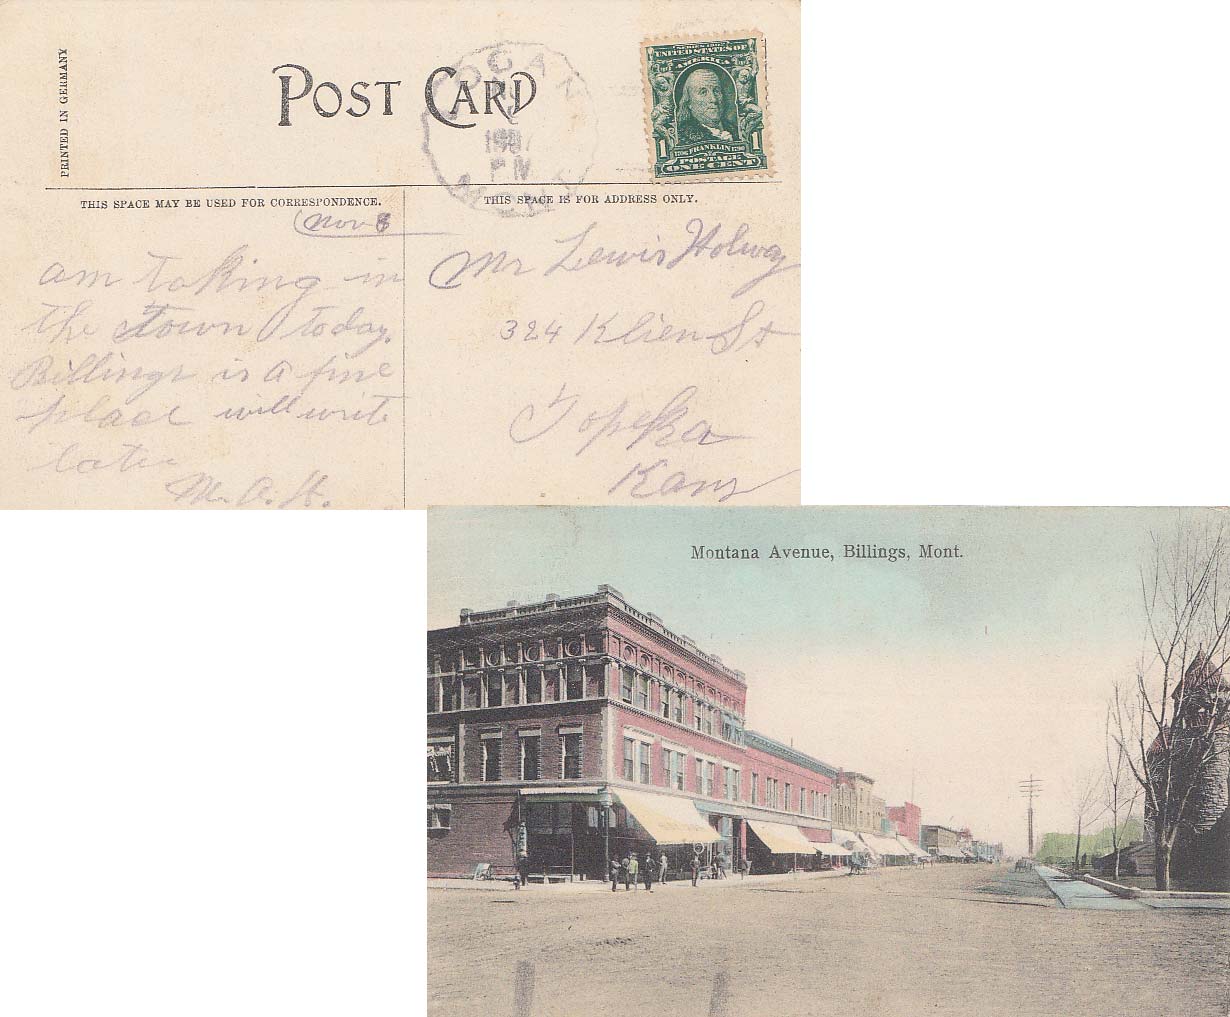 PRINTED IN GERMANY
POST CARD
LOGAN
1907
PM
MONT
SERIES 1902
UNITED STATES OF
AMERICA
1706 FRANKLIN 1790
1 1
POSTAGE
ONE CENT
THIS SPACE MAY BE USED FOR CORRESPONDENCE.
THIS SPACE IS FOR ADDRESS ONLY.
Nov 8
am taking in
the town today.
Billings is a fine
place will write
later
M. A. H.
Mr Lewis Holway
324 Klien St
Topeka
Kans
Montana Avenue, Billings, Mont.